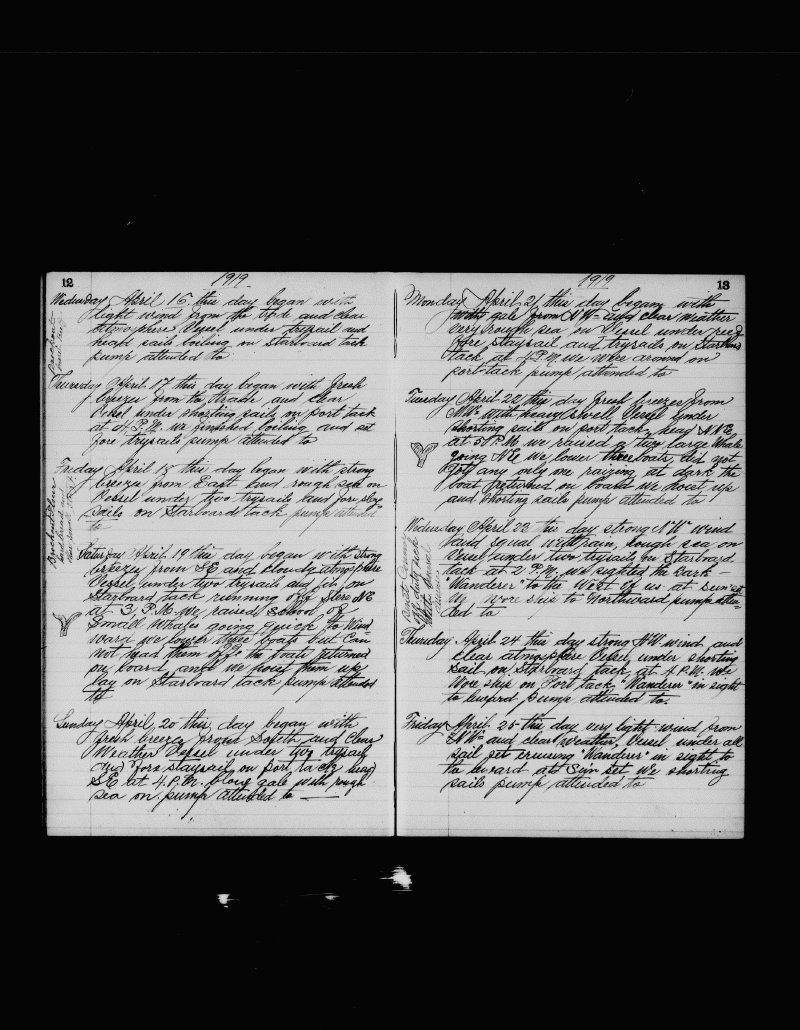 12
1919
Wednesday April 16 this day began with
light wind from the trade and clear
atmosphere Vessel under trysail and
head sails boiling on Starboard tack
pump attended to
Thursday April 17 this day began with fresh
breeze from the trade and clear
Vessel under shorting sails on port tack
at 4 P.M. we finished boiling and set
fore trysails pump attended to
Friday April 18 this day began with strong
breeze from East and rough sea on
Vessel under two trysails and fore stay
sails on Starboard tack pump attended
to
Broachout Flour
hard bread and
Saturday April 19 this day began with strong
breeze from SE and cloudy atmosphere
Vessel under two trysails and jib on
Starboard tack running off Stere NE
at 3 P.M. we raised School of
Small Whales going quick to Wind
ward we lower three boats but Can
not had them off the boats returned
on board and we hoist them up
lay on Starboard tack pump attended
to
Sunday April 20 this day began with
fresh breeze from South and Clear
Weather Vessel under two trysail
and fore staysail on port tack head
SE at 4 P.M. blong gale with rough
sea on pump attended to
13
1919
Monday April 21 this day began with
gale from NW and clear weather
very rough sea on Vessel under reef
fore staysail and trysails on Starboard
tack at 4 P.M. we wore around on
port tack pump attended to
Tuesday April 22 this day fresh breezes from
NW with heavy swell Vessel under
shorting sails on port tack head NNE
at P.M. we raised a two large Whale
going NE we lower three boats did got
got any only one raizing at dark the
boat returned on board we hoist up
and shorting sails pump attended to
Wednesday April 23 this day strong NW wind
hard squal with rain, rough sea on
Vessel under two trysails on Starboard
tack at 2 P.M. we sighted the Bark
"Wanderer" to the West of us at Sun set
We wore ship to Northward pump atten-
ded to
Thursday April 24 this day strong NW wind and
clear atmosphere Vessel under shorting
sail on Starboard tack at 4 P.M. We
Wore ship on Port tack "Wanderer" in sight
to leward pump attended to.
Friday April 25 this day very light wind from
NW and clear Weather, Vessel under all
sail set cruising "Wanderer" in sight to
to leward at Sun set we shorting
sails pump attended to